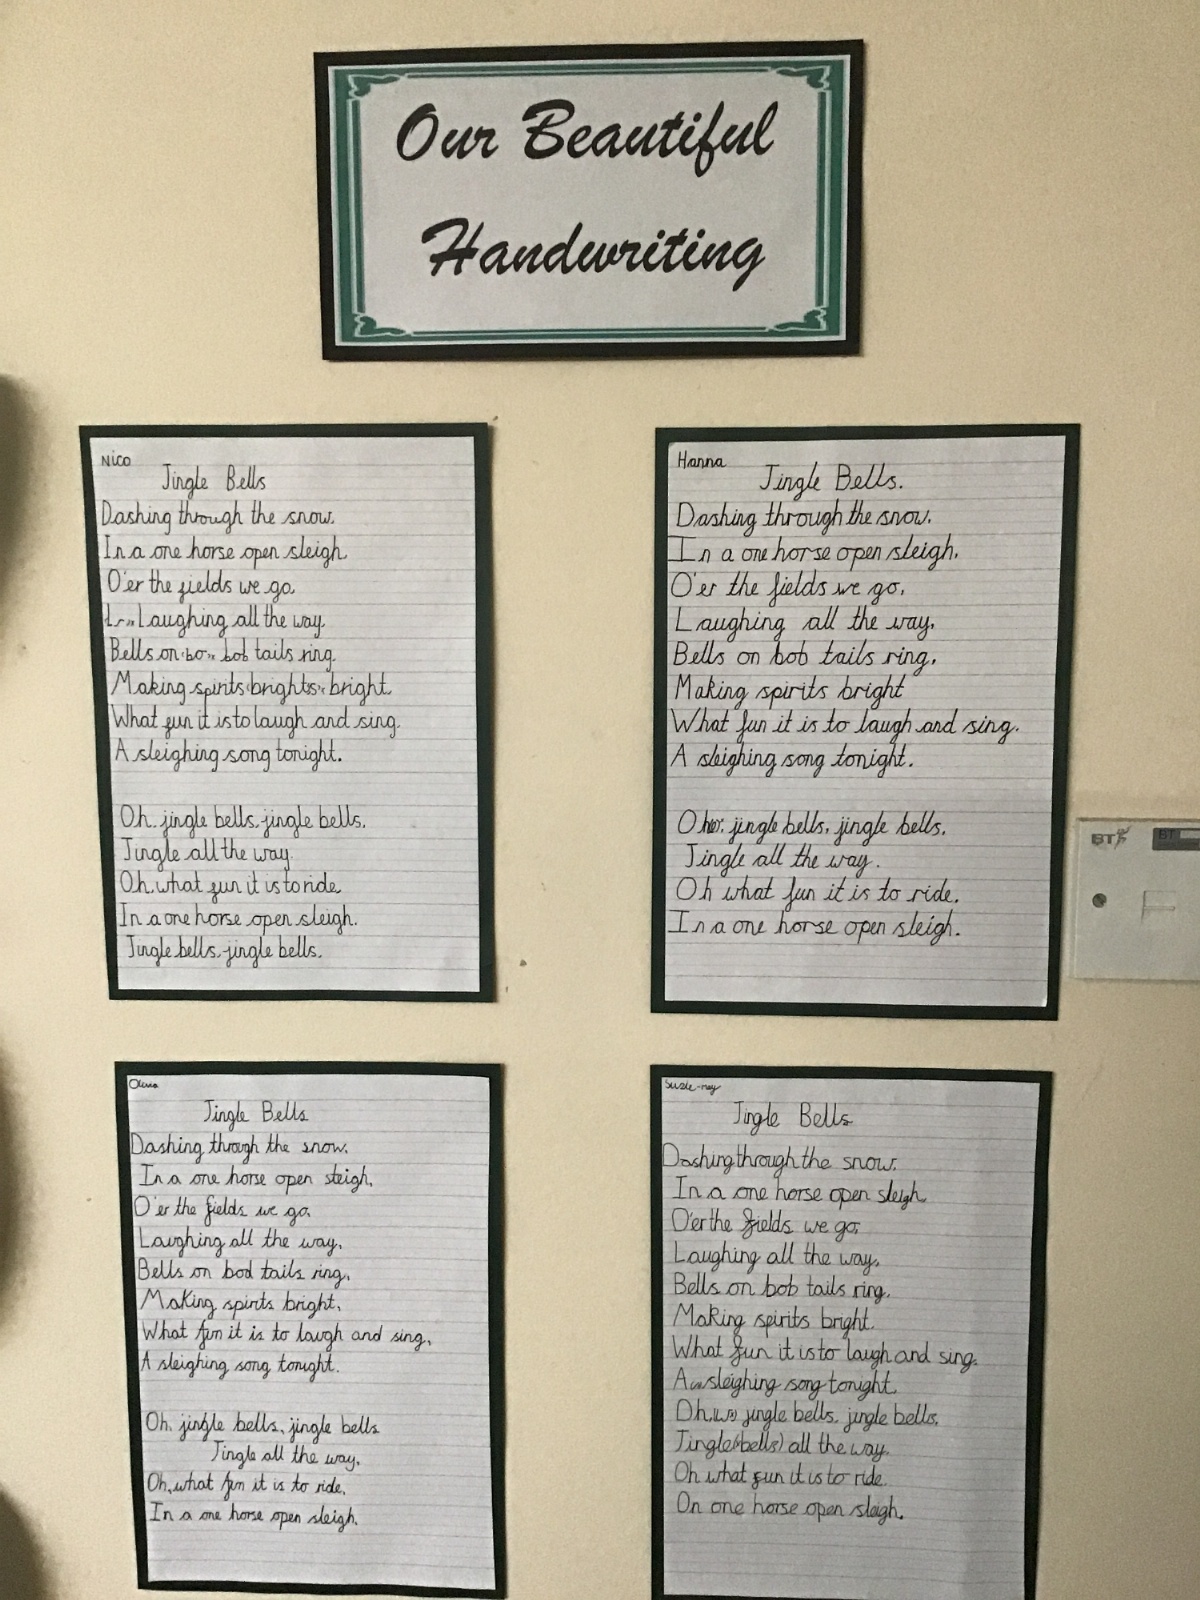 Our Beautiful
Handwriting
Nico
Jingle Bells
Dashing through the snow.
In a one horse open sleigh.
O'er the fields we go,
Laughing all the way.
Bells on bo bob tails ring.
Making spirits brights bright.
What fun it is to laugh and sing.
A sleighing song tonight.
Oh. jingle bells, jingle bells.
Jingle all the way.
Oh, what fun it is to ride.
In a one horse open sleigh.
Jingle bells, jingle bells.
Hanna
Jingle Bells.
Dashing through the snow.
In a one horse open sleigh.
O'er the fields we go.
Laughing all the way.
Bells on bob tails ring.
Making spirits bright
What fun it is to laugh and sing.
A sleighing song tonight.
Oh jingle bells, jingle bells.
Jingle all the way.
Oh what fun it is to ride.
In a one horse open sleigh.
BT
BT
Olivia
Jingle Bells
Dashing through the snow.
In a one horse open sleigh.
O'er the fields we go.
Laughing all the way.
Bells on bod tails ring.
Making spirits bright.
What fun it is to laugh and sing.
A sleighing song tonight.
Oh. jingle bells, jingle bells
Jingle all the way.
Oh, what fun it is to ride.
In a one horse open sleigh.
Suzie-may
Jingle Bells
Dashing through the snow.
In a one horse open sleigh
O'er the fields we go,
Laughing all the way.
Bells on bob tails ring.
Making spirits bright.
What fun it is to laugh and sing.
A sleighing song tonight.
Oh. jingle bells, jingle bells.
Jingle (bells) all the way.
Oh what fun it is to ride.
On one horse open sleigh.